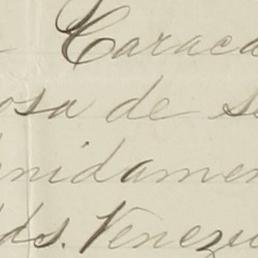 Caraca
osa de s
nidamen
ds. Venezu